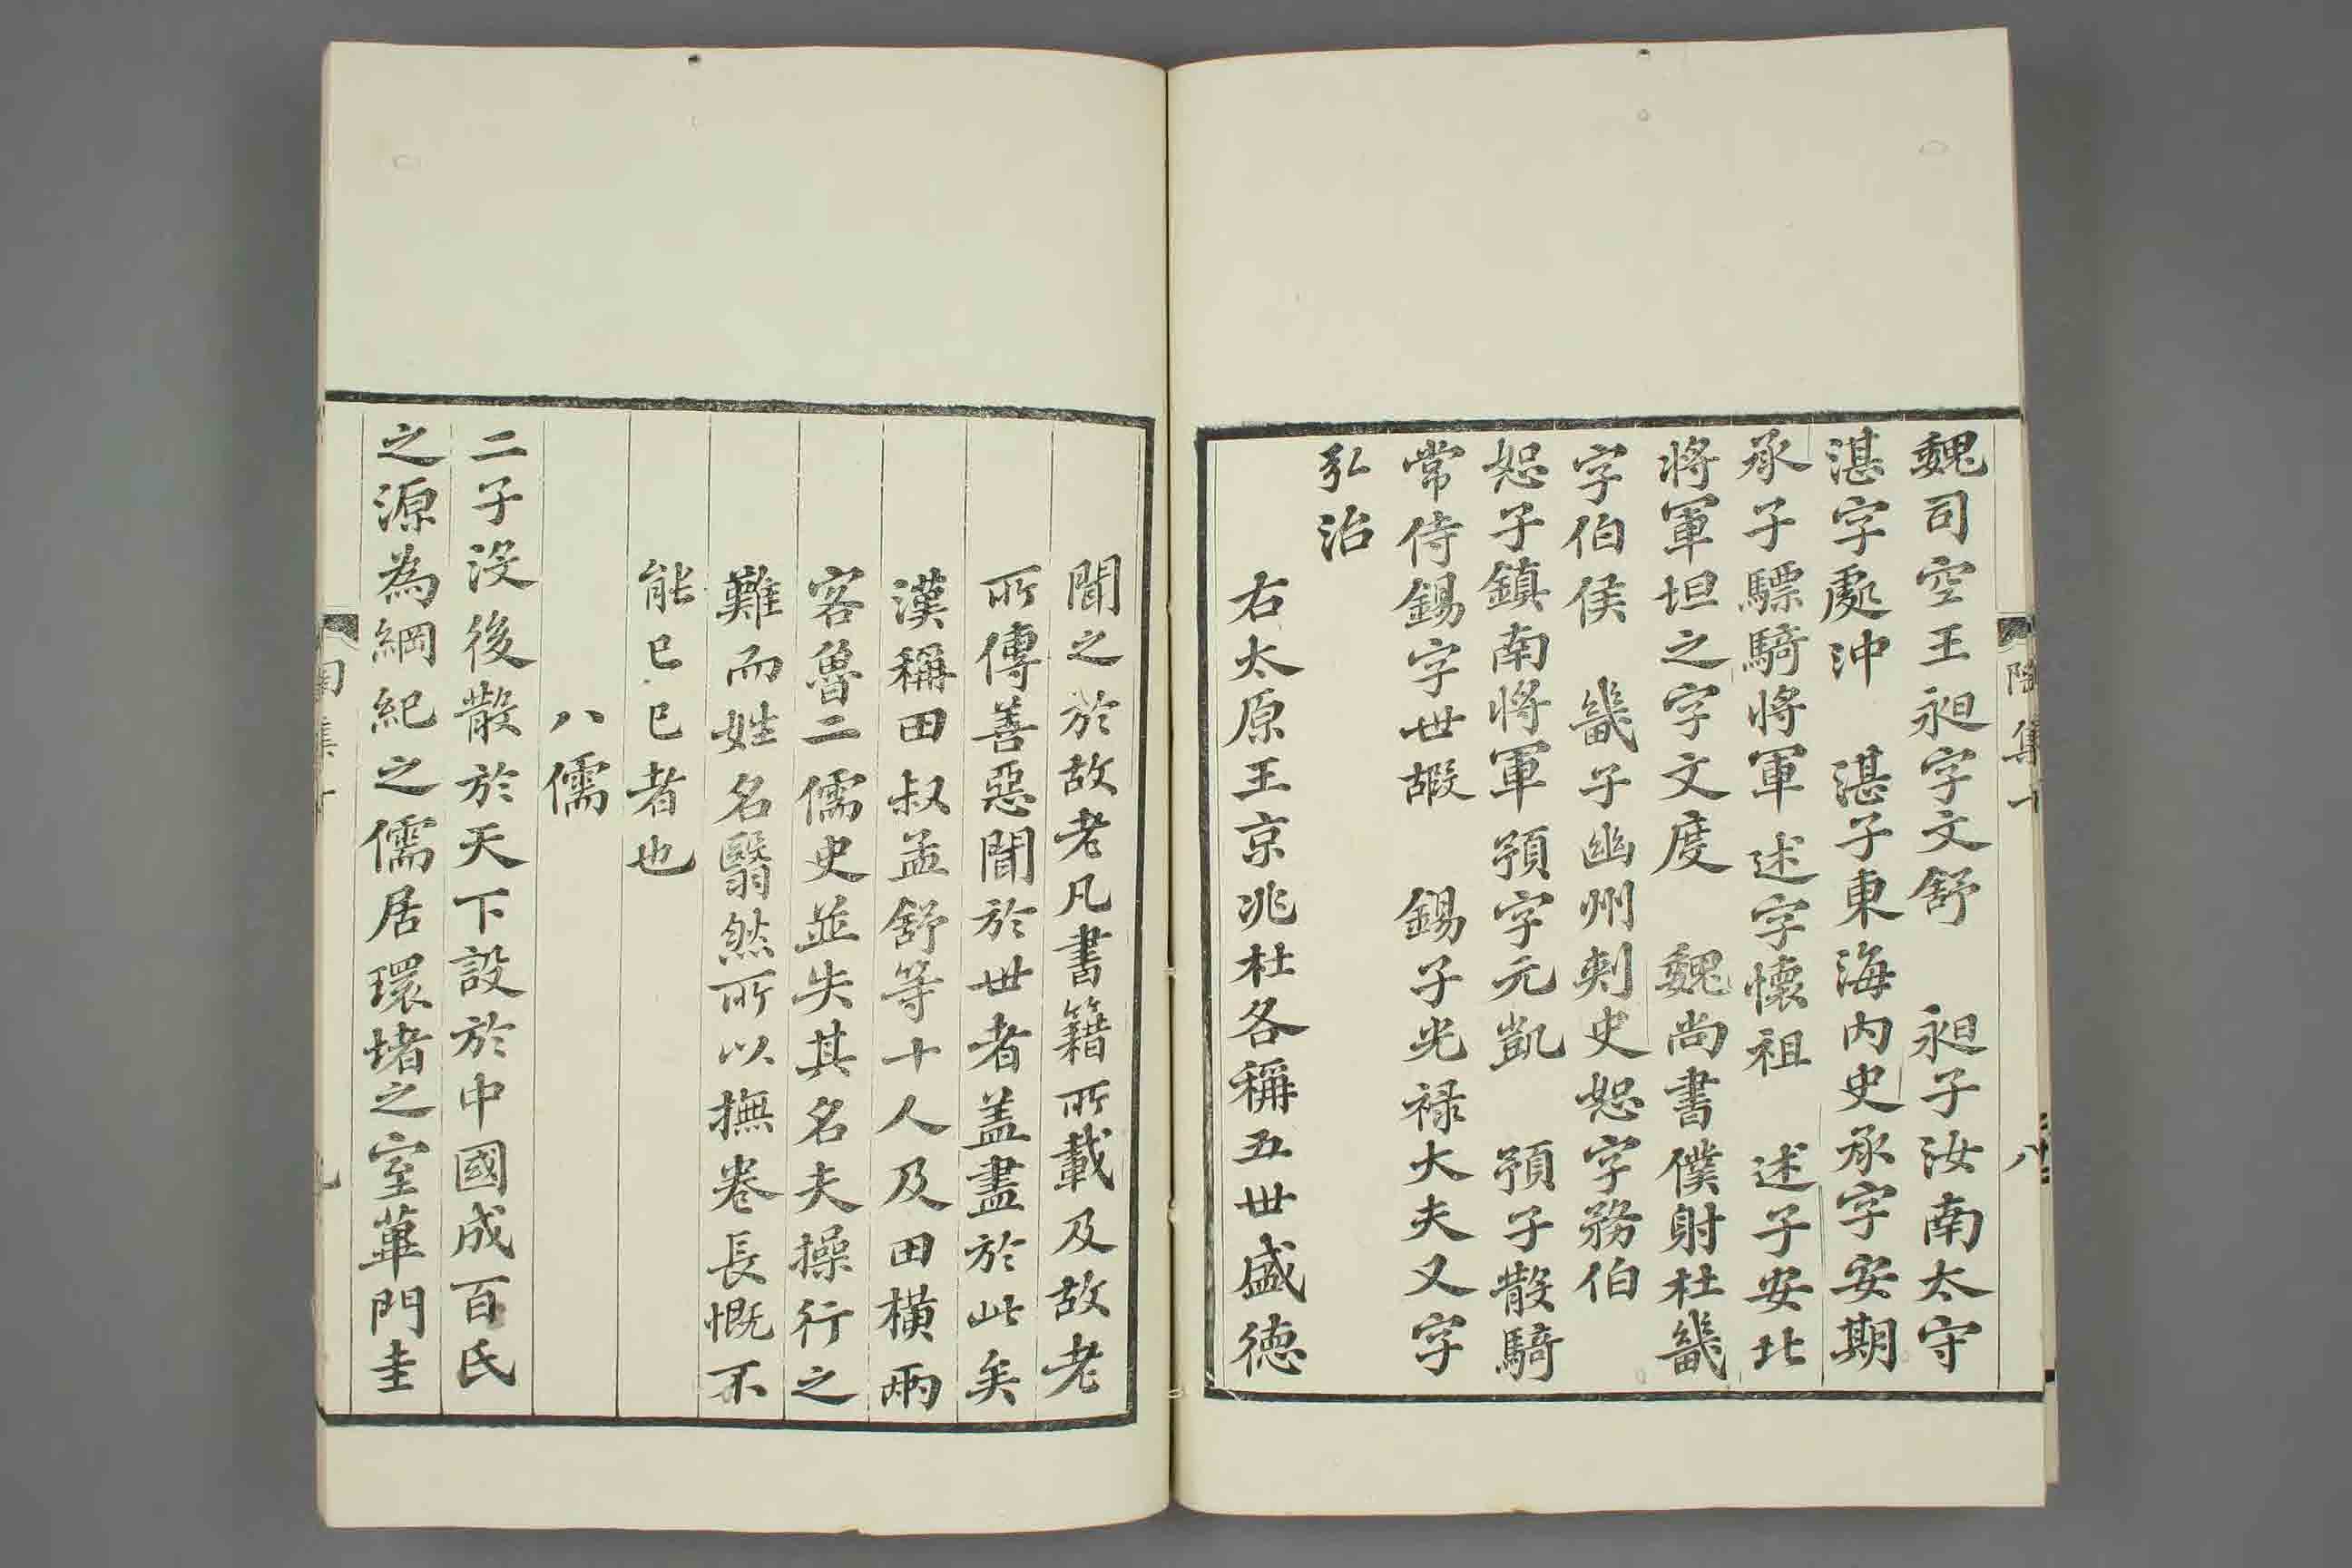 魏司空王昶字文舒　昶子汝南太守
湛字處沖　湛子東海內史承字安期
承子驃騎將軍述字懷祖　述子安北
將軍坦之字文度　魏尚書僕射杜畿
字伯侯　畿子幽州刺史恕字務伯
恕子鎮南將軍預字元凱　預子散騎
常侍錫字世嘏　錫子光祿大夫乂字
弘治
右太原王京兆杜各稱五世盛德
聞之於故老凡書籍所載及故老
所傳善惡聞於世者盖盡於此矣
漢稱田叔孟舒等十人及田橫兩
客魯二儒史並失其名夫操行之
難而姓名翳然所以撫卷長慨不
能已已者也
八儒
二子沒後散於天下設於中國成百氏
之源為綱紀之儒居環堵之室蓽門圭
陶集十
八